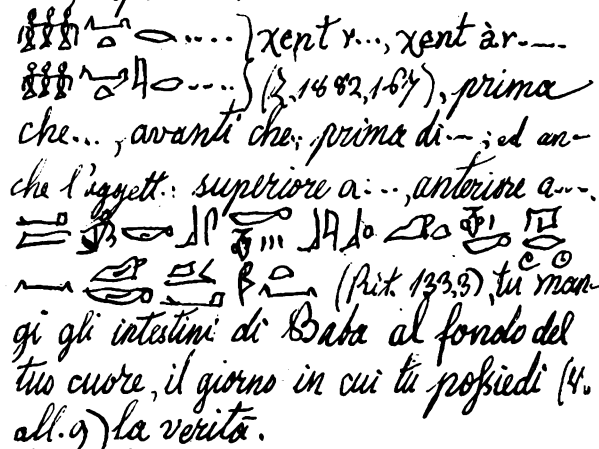 ..... } χent r..., χent àr....
..... } (Z, 1882, 167), prima
che..., avanti che; prima di...; ed an-
che l'aggett.: superiore a..., anteriore a....
(Rit. 133,3), tu man-
gi gli intestini di Baba al fondo del
tuo cuore, il giorno in cui tu poſsiedi (V.
all. 9) la verità.